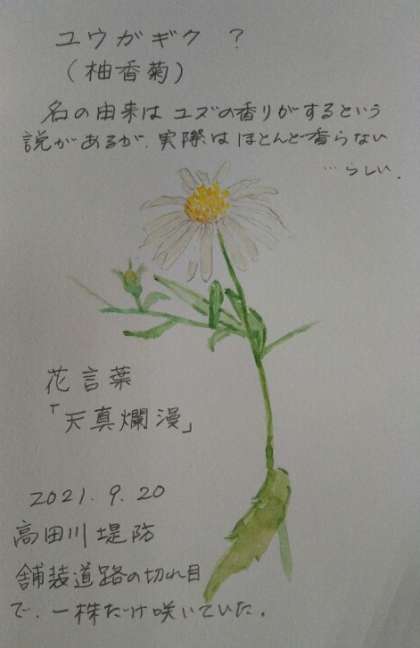 ユウガギク ?
(柚香菊)
名の由来は ユズの香りがするという
説があるが、実際は ほとんど香らない
…らしい.
花言葉
「天真爛漫」
2021.9.20
高田川堤防
舗装道路の切れ目
で、一株だけ咲いていた.